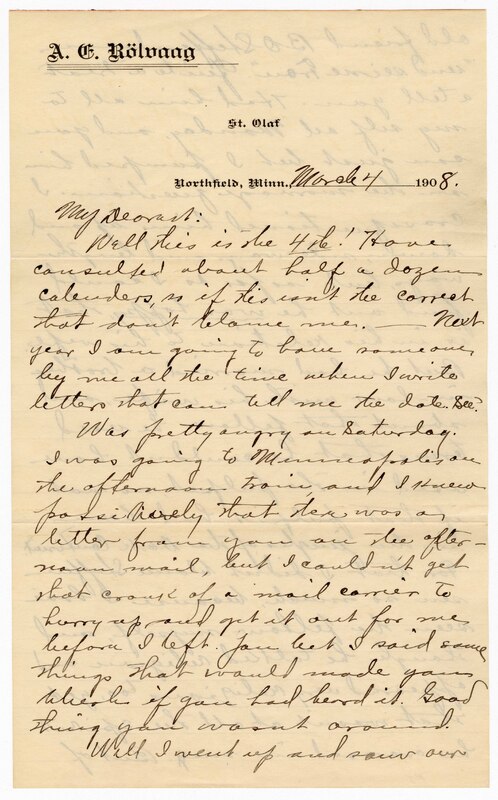 A. E. Rölvaag
St. Olaf
Northfield, Minn., March 4 1908.
My Dearest:
Well this is the 4th! Have
consulted about half a dozen
calenders, so if this isn't the correct
that don't blame me. — Next
year I am going to have someone
by me all the time when I write
letters that can tell me the date. See?
Was pretty angry on Saturday.
I was going to Minneapolis on
the afternoon train and I knew
possitively that there was a
letter from you on the after-
noon mail, but I couldn't get
that crank of a mail carrier to
hurry up and get it out for me
before I left. You bet I said some
things that would made you
blush if you had herd it. Good
thing you wasnt around.
Well I went up and saw our